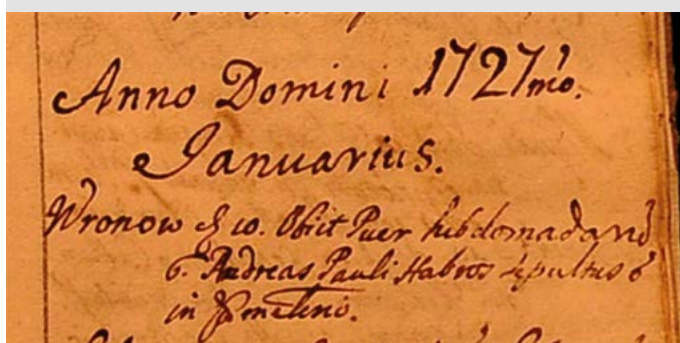 Anno Domini 1727mo.
Januarius.
Wronow d 10. Obiit Puer hebdomadarū
6. Andreas Pauli Habros sepultus ē
in